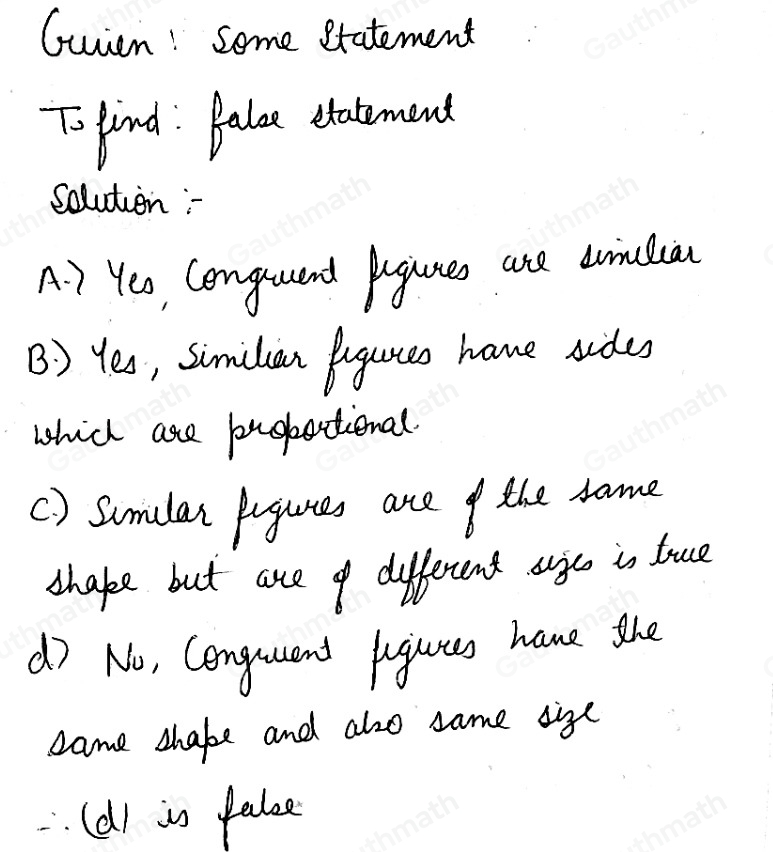 Given: Some Statement
To find: false statement
Solution :-
A.) Yes, Congruent figures are similiar
B.) Yes, Similiar figures have sides
which are proportional.
C.) Similar figures are of the same
shape but are of different sizes is true
d) No, Congruent figures have the
same shape and also same size
∴ (d) is false